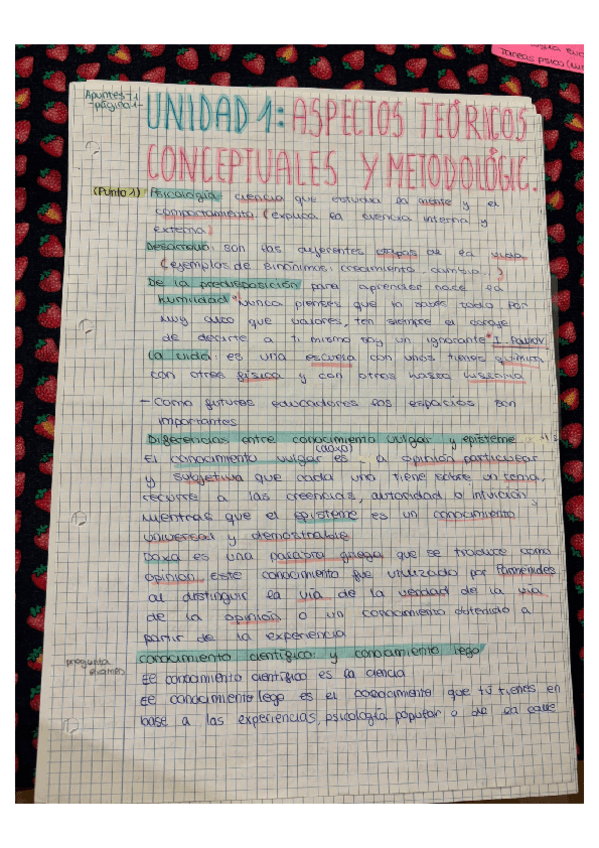 tareas psico
Apuntes T1
-página 1-
UNIDAD 1: ASPECTOS TEÓRICOS
CONCEPTUALES Y METODOLÓGIC.
(Punto 1) Psicología ciencia que estudia la mente y el
comportamiento (explica la ciencia interna y
externa)
Desarrollo: son las diferentes etapas de la vida
(ejemplos de sinónimos: crecimiento, cambio...)
De la predisposición para aprender nace la
humildad "Nunca pienses que lo sabes todo. Por
muy alto que valores, ten siempre el coraje
de decirte a ti mismo soy un ignorante" I. Paulov
La vida: es una escuela con unos tienes química
con otros física y con otros hasta historia
- Como futuros educadores los espacios son
importantes
Diferencias entre conocimiento vulgar y episteme
(doxa)
El conocimiento vulgar es la opinión particular
y subjetiva que cada uno tiene sobre un tema,
recurre a las creencias, autoridad o intuición,
mientras que el episteme es un conocimiento
universal y demostrable
Doxa es una palabra griega que se traduce como
opinión. Este conocimiento fue utilizado por Parménides
al distinguir la vía de la verdad de la vía
de la opinión o un conocimiento obtenido a
partir de la experiencia
pregunta
examen
conocimiento científico: y conocimiento lego
El conocimiento científico es la ciencia
El conocimiento lego es el conocimiento que tú tienes en
base a las experiencias, psicología popular o de la calle